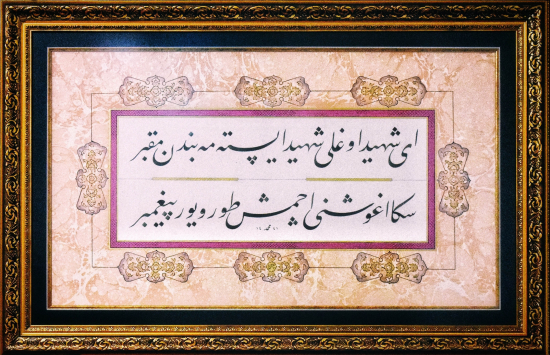 ای شهید اوغلی شهید ایسته مه بندن مقبر
سكا اغوشنی اچمش طورویور پیغمبر